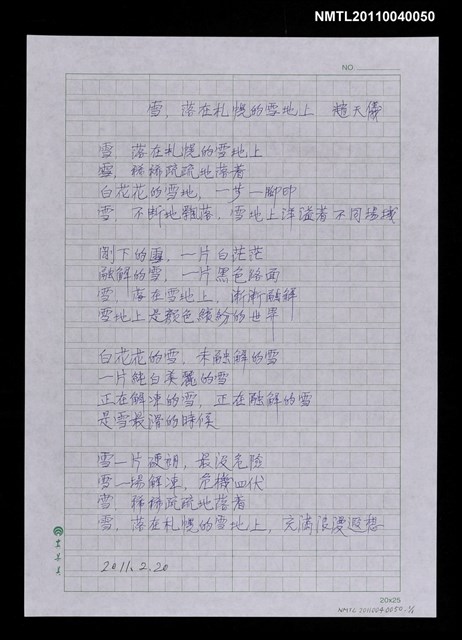 NMTL20110040050
NO
雪，落在札幌的雪地上　趙天儀
雪，落在札幌的雪地上
雪，稀稀疏疏地落著
白花花的雪地，一步一腳印
雪，不斷地飄落，雪地上洋溢著不同場域
剛下的雪，一片白茫茫
融解的雪，一片黑色路面
雪，落在雪地上，漸漸融解
雪地上是顏色繽紛的世界
白花花的雪，未融解的雪
一片純白美麗的雪
正在解凍的雪，正在融解的雪
是雪最滑的時候
雪一片硬朗，最沒危險
雪一場解凍，危機四伏
雪，稀稀疏疏地落著
雪，落在札幌的雪地上，充滿浪漫遐想
2011.2.20
20x25
NMTL20110040050